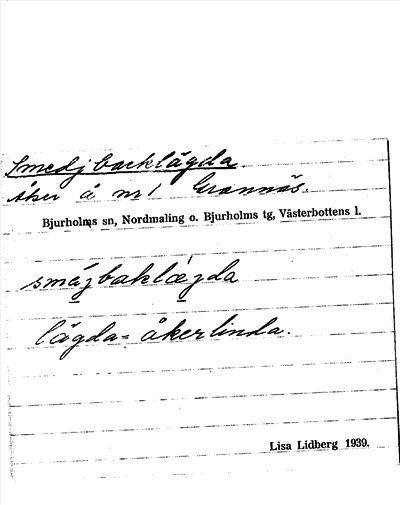 Smedjbacklägda
Åker å nr 1 Grannäs.
Bjurholms sn, Nordmaling o. Bjurholms tg, Västerbottens l.
smäjbaklægda
lägda = åkerlinda.
Lisa Lidberg 1939.